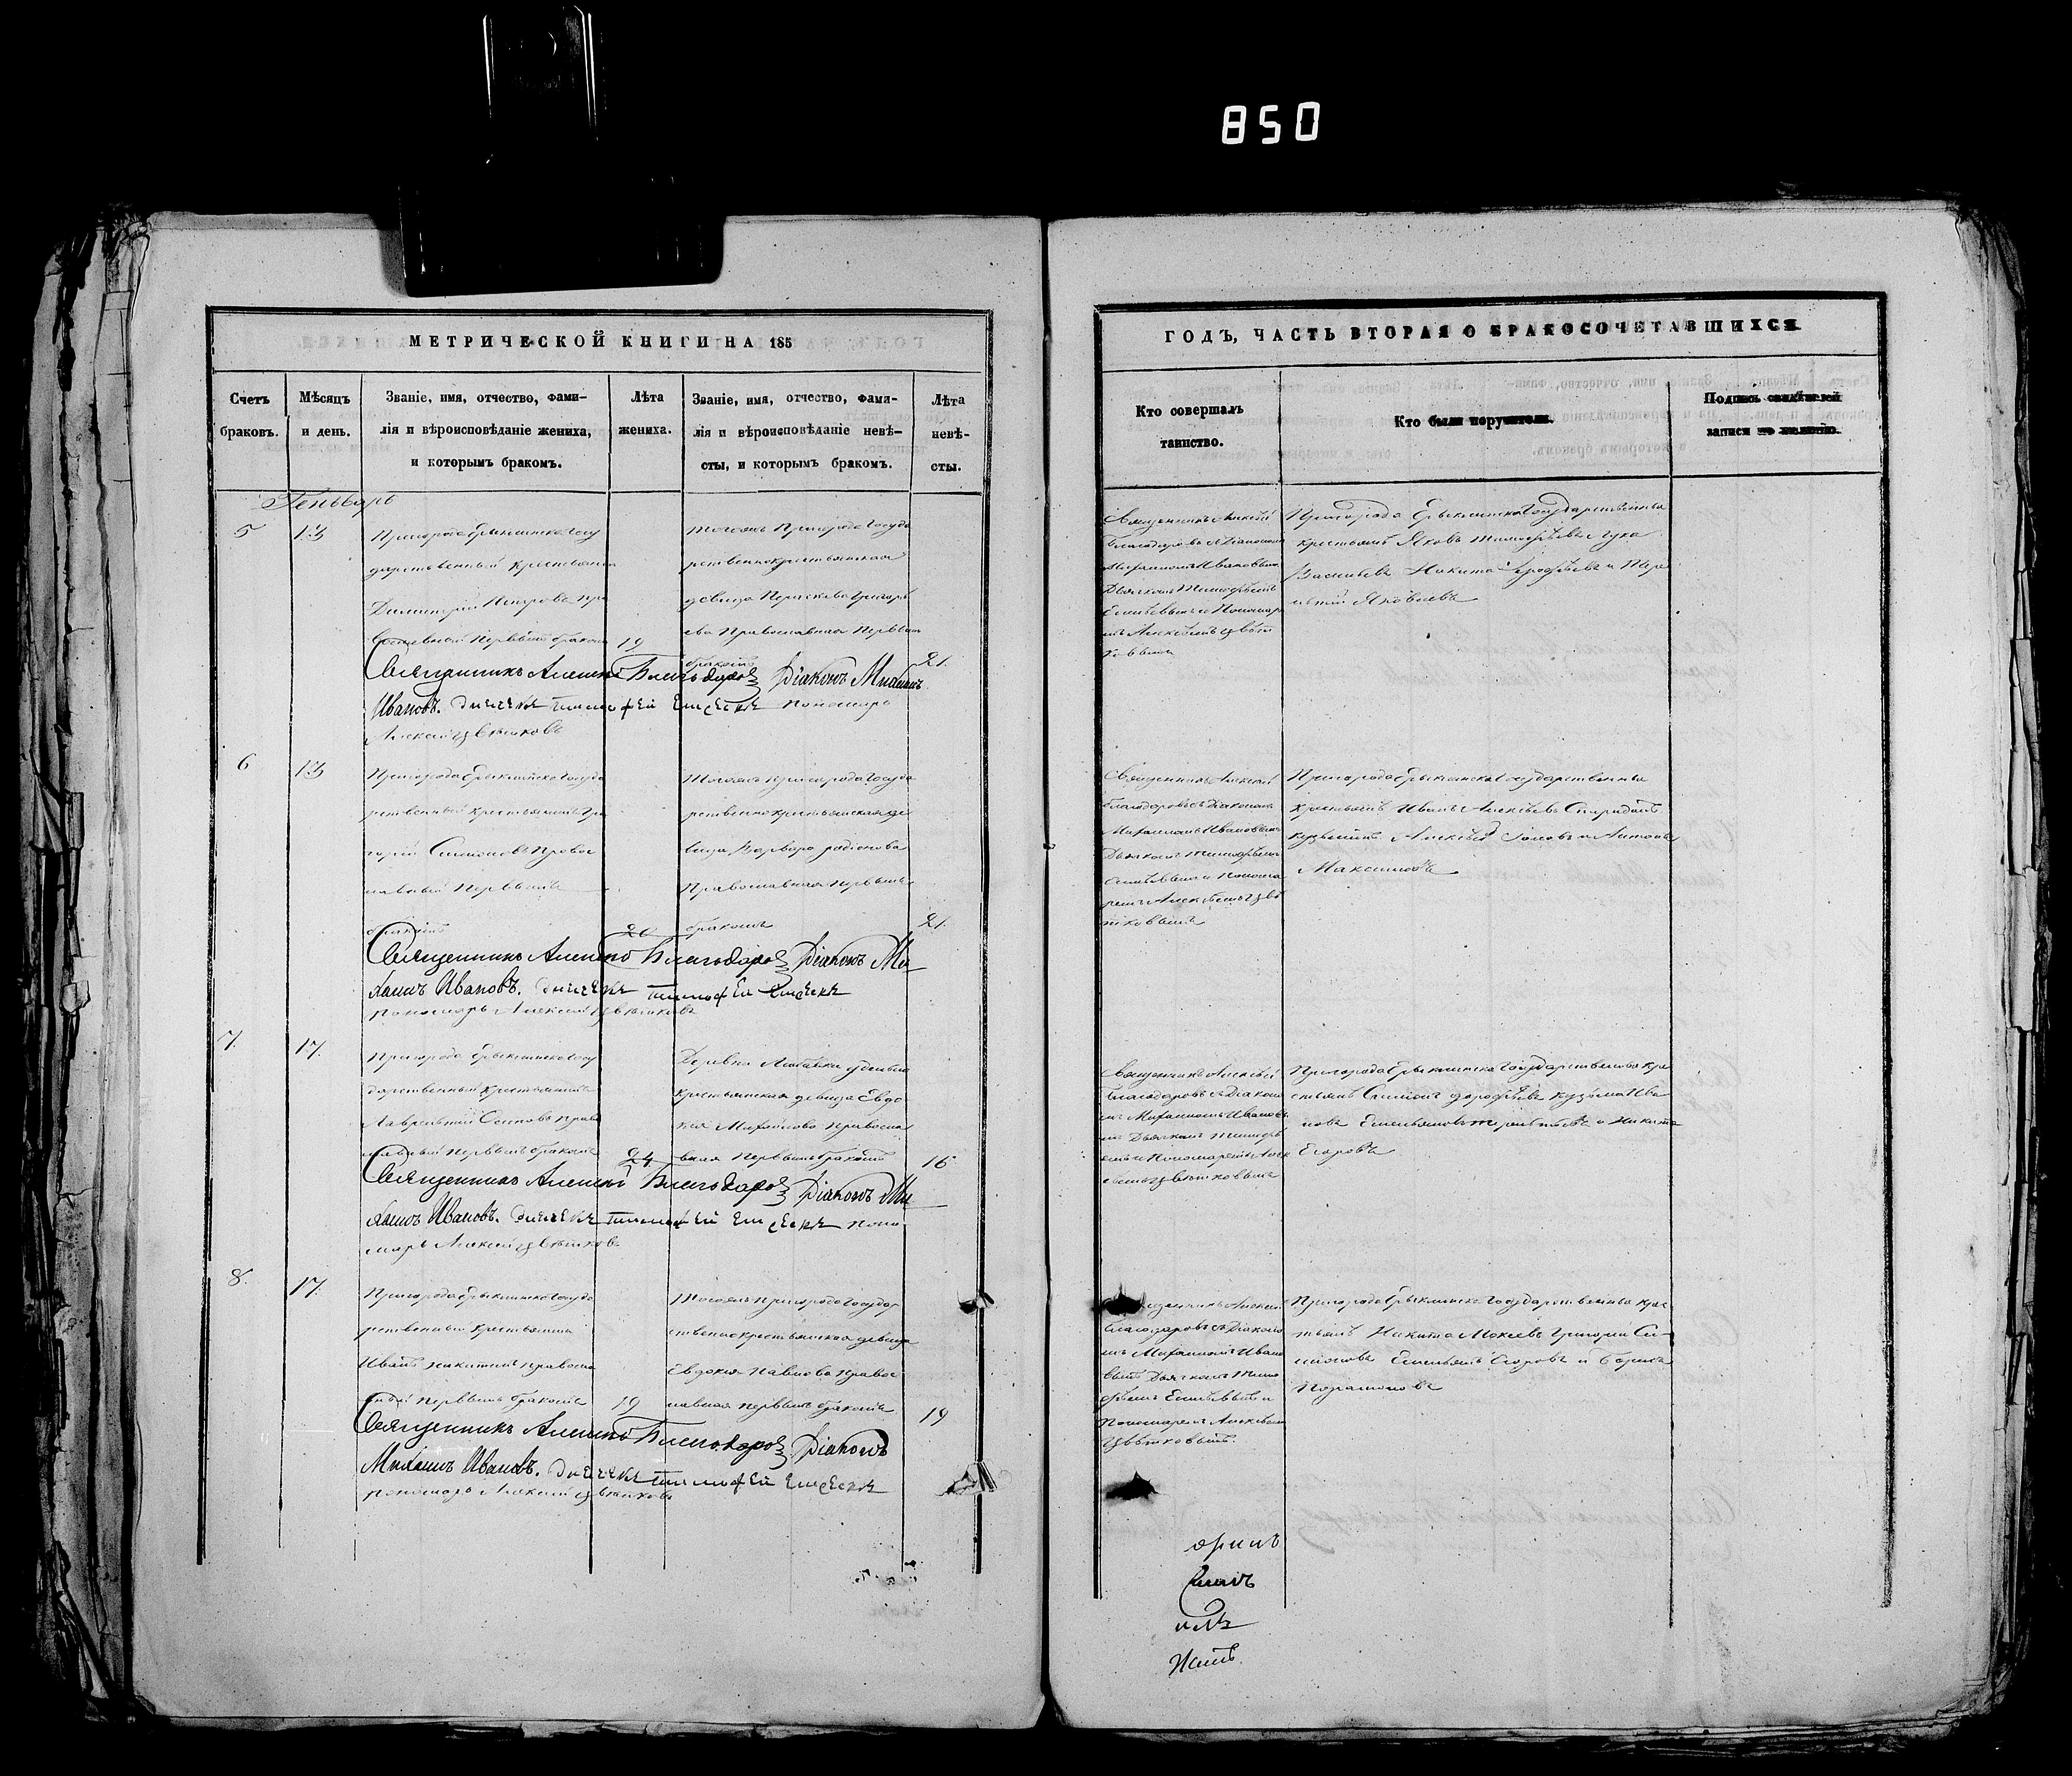 850
МЕТРИЧЕСКОЙ КНИГИ НА 185
Счетъ браковъ.
Мѣсяцъ и день.
Званіе, имя, отчество, фами-
лія и вѣроисповѣданіе жениха,
и которымъ бракомъ.
Лѣта
жениха.
Званіе, имя, отчество, фами-
лія и вѣроисповѣданіе невѣ-
сты, и которымъ бракомъ.
Лѣта
невѣ-
сты.
Геньварь
5
13
Пригорода Ерыклинска Госу
дарственный крестьянин
Димитрий Петровъ пра
вославный первымъ бракомъ
19
тогожъ Пригорода Госуда
рственнокрестьянская
девица Параскева Григорь
ева Православная первым
бракомъ
21.
Священникъ Алексий Благодаров Діаконъ Михаилъ
Ивановъ. дьячекъ тимофей Елисеевъ Пономарь
Алексий Цветковъ
6
13
Пригорода Ерыклинска Госуда
рственный крестьянинъ Гри
горий Симоновъ Правос
лавный Первымъ
бракомъ
20
Тогожъ Пригорода Госуда
рственнокрестьянская де
вица Варвара радионова
Православная первымъ
бракомъ
21.
Священникъ Алексий Благодаров Діаконъ Ми
хаилъ Ивановъ. дьячекъ тимофей Елисеевъ
пономарь Алексий Цветковъ
7.
17.
Пригорода Ерыклинска Госу
дарственный крестьянинъ
Лаврентий Осиповъ Право
славный первымъ бракомъ
24
Деревни удельная
крестьянская девица Евдо
кия Михайлова Православ
ная первымъ бракомъ
16
Священникъ Алексий Благодаров Діаконъ Ми
хаилъ Ивановъ. дьячекъ тимофей Елисеевъ поно
марь Алексий Цветковъ
8.
17.
Пригорода Ерыклинска Госуда
рственный крестьянин
Иванъ Никитинъ правосла
вный первымъ бракомъ
19
Тогожъ пригорода Государ
ственнокрестьянская девица
Евдокия Павлова правос
лавная первымъ бракомъ
19
Священникъ Алексий Благодаров Діаконъ
Михаилъ Ивановъ. дьячекъ тимофей Елисеевъ
пономарь Алексий Цветковъ
ГОДЪ, ЧАСТЬ ВТОРАЯ О БРАКОСОЧЕТАВШИХСЯ.
Кто совершалъ
таинство.
Кто были поручители.
Подпись свидѣтелей
записи по желанію.
Священникъ Алексей
Благодаровъ с Діакономъ
Михаиломъ Ивановым
Дьячкомъ Тимофеемъ
Елисеевымъ и Пономар
емъ Алексеемъ Цвет
ковымъ
Пригорода Ерыклинска Государственные
крестьяне Яковъ Тимофеевъ Лука
Васильевъ Никита Ерофеевъ и
Яковлевъ
Священникъ Алексей
Благодаровъ с Діаконом
Михаиломъ Ивановымъ
Дьячкомъ Тимофеемъ
Елисеевымъ и Понома
ремъ Алексеемъ Цве
тковымъ
Пригорода Ерыклинска Государственные
крестьяне Иванъ Алексеевъ Спиридонъ
Кузьминъ Алексей и Антонъ
Максимовъ
Священникъ Алексей
Благодаровъ с Діакон
омъ Михаиломъ Иванов
ымъ Дьячкомъ Тимоф
еемъ и Пономаремъ Алек
сеемъ Цветковымъ
Пригорода Ерыклинска Государственные кре
стьяне Симеонъ дорофеевъ Кузьма Ива
новъ Емельянъ и Никита
Егоровъ
Священникъ Алексей
Благодаровъ с Діакон
омъ Михаиломъ Ивано
вымъ Дьячкомъ Тимо
феемъ Елисеевымъ и
Пономаремъ Алексеем
Цветковымъ.
Пригорода Ерыклинска Государственные крес
тьяне Никита Мокеевъ Григорий Си-
моновъ Емельянъ Егоровъ и Борисъ